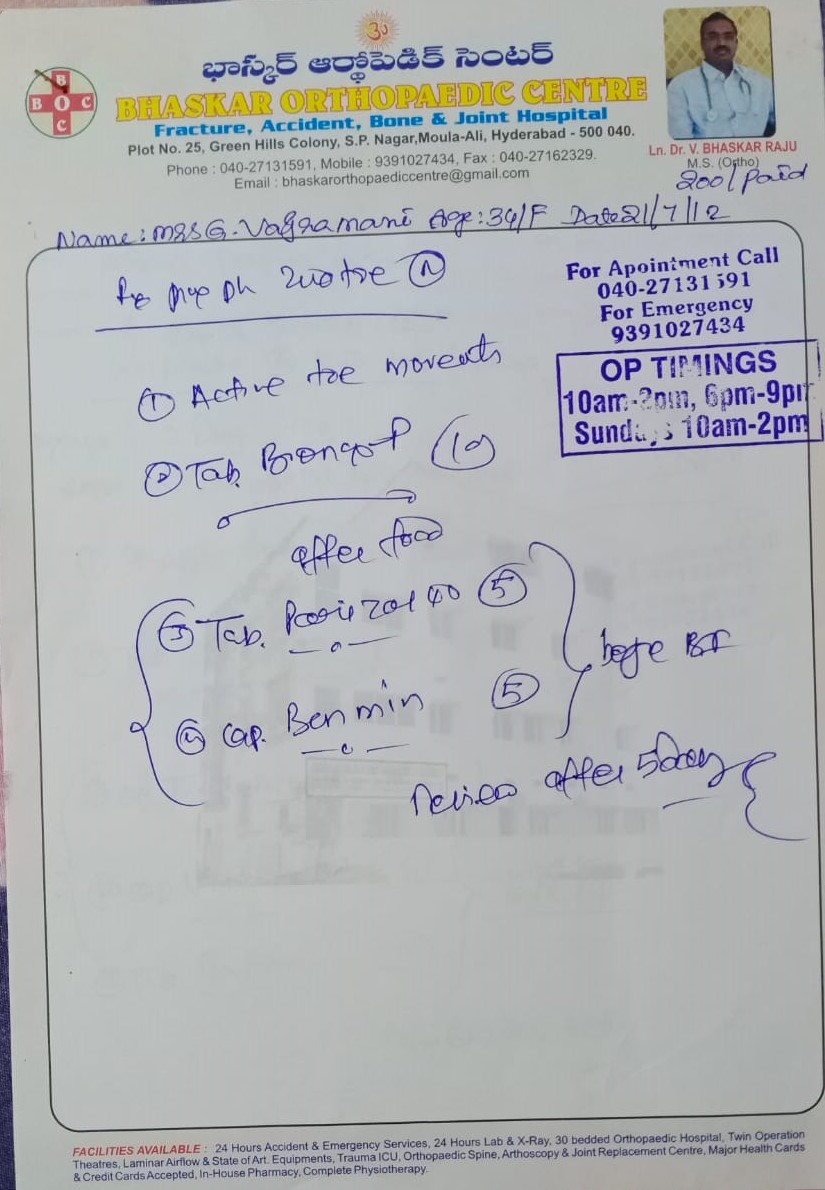 భాస్కర్ ఆర్థోపెడిక్ సెంటర్
B
B O C
C
BHASKAR ORTHOPAEDIC CENTRE
Fracture, Accident, Bone & Joint Hospital
Plot No. 25, Green Hills Colony, S.P. Nagar,Moula-Ali, Hyderabad - 500 040.
Phone : 040-27131591, Mobile : 9391027434, Fax : 040-27162329.
Email : bhaskarorthopaediccentre@gmail.com
Ln. Dr. V. BHASKAR RAJU
M.S. (Ortho)
200/ Paid
Name: G. Age: 34/F Date 21/7/12
For Apointment Call
040-27131591
For Emergency
9391027434
OP TIMINGS
10am-2pm, 6pm-9pm
Sundays 10am-2pm
① Active toe
② Tab.
after food
③ Tab. 40 ⑤
④ Cap. Benmin ⑤
Review after 5 days
FACILITIES AVAILABLE : 24 Hours Accident & Emergency Services, 24 Hours Lab & X-Ray, 30 bedded Orthopaedic Hospital, Twin Operation
Theatres, Laminar Airflow & State of Art. Equipments, Trauma ICU, Orthopaedic Spine, Arthoscopy & Joint Replacement Centre, Major Health Cards
& Credit Cards Accepted, In-House Pharmacy, Complete Physiotherapy.